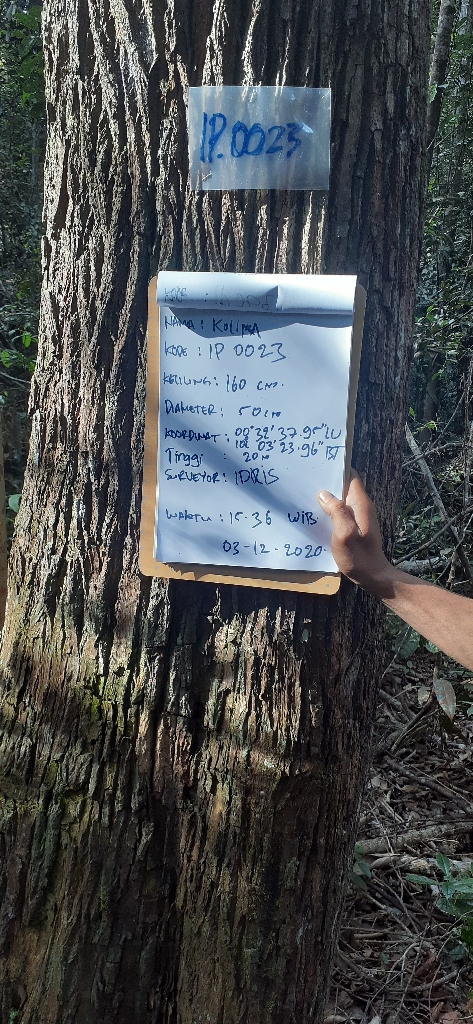 IP.0023
NAMA : KULIMA
KODE : IP 0023
KELILING : 160 cm.
DIAMETER : 50 cm
KOORDINAT : 00°32'37.95" LU
102 03'23.96" BT
Tinggi : 20 m
SURVEYOR : IDRIS
WAKTU : 15.36 WIB.
03-12-2020